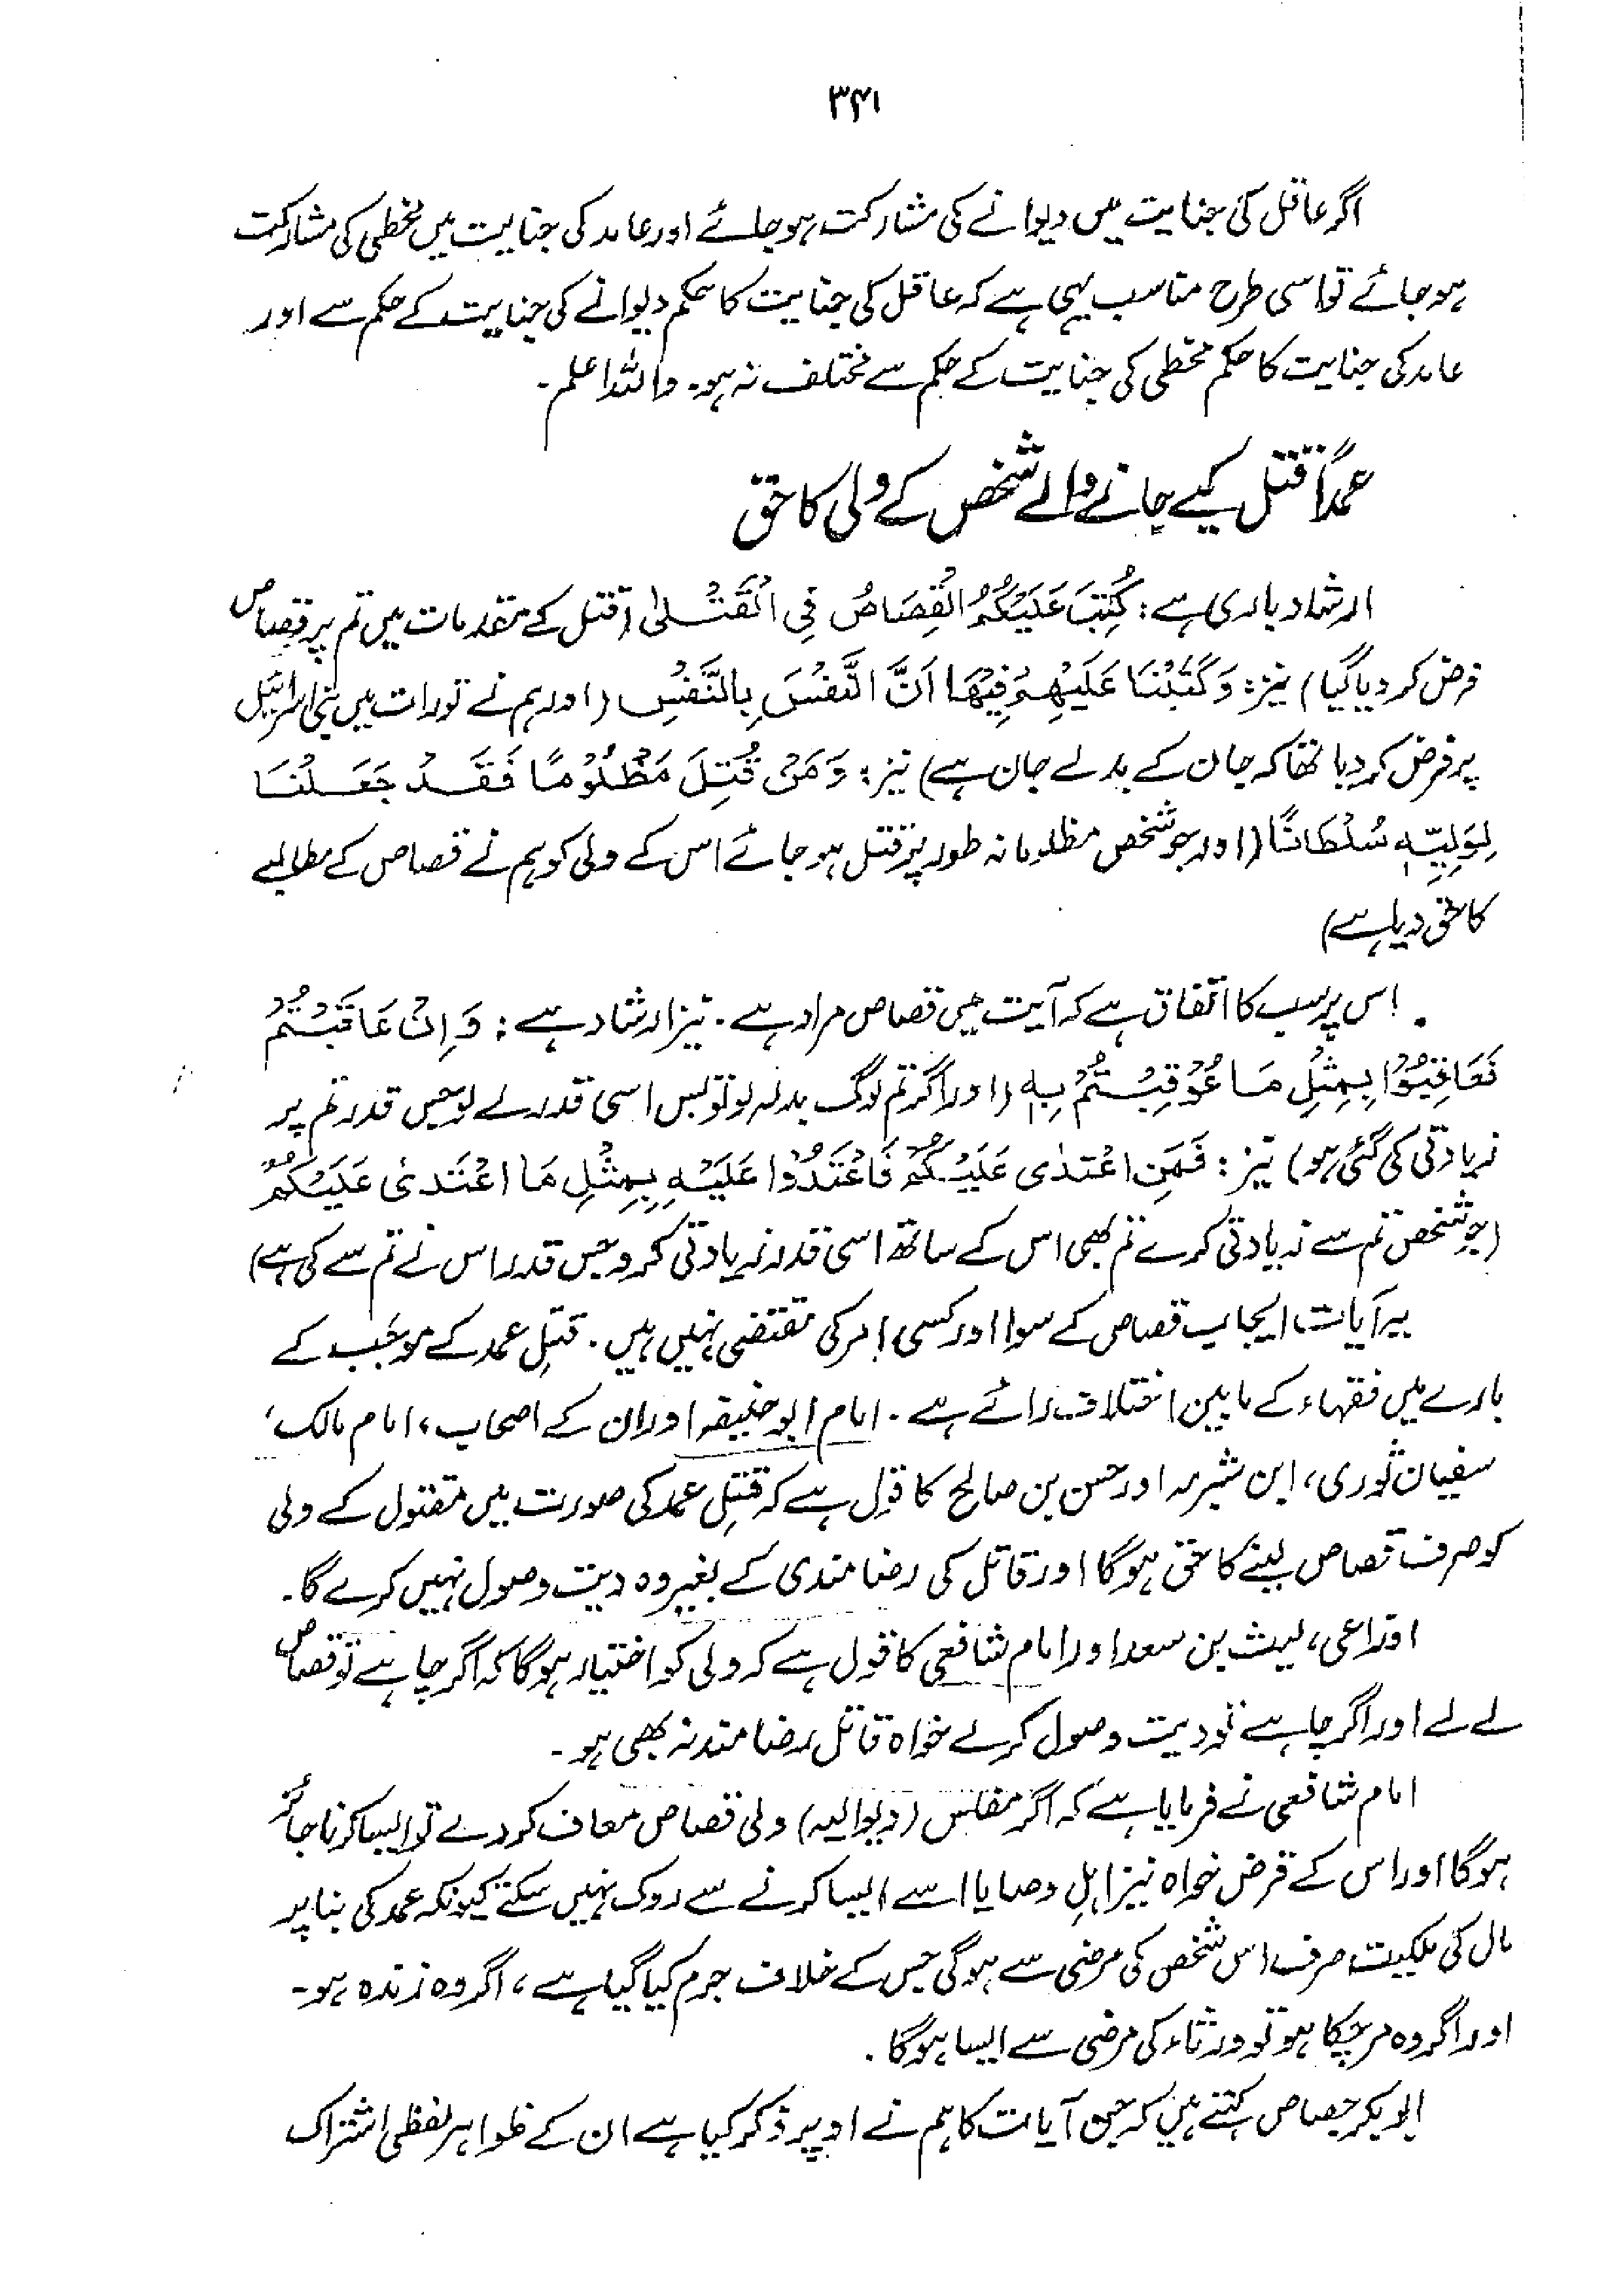 ۳۴۱
اگر عاقل کی جنایت میں دیوانے کی مشارکت ہو جائے اور عامد کی جنایت میں مخطی کی مشارکت
ہو جائے تو اسی طرح مناسب یہی ہے کہ عاقل کی جنایت کا حکم دیوانے کی جنایت کے حکم سے اور
عامد کی جنایت کا حکم مخطی کی جنایت کے حکم سے مختلف نہ ہو۔ واللہ اعلم۔
عمداً قتل کیے جانے والے شخص کے ولی کا حق
ارشاد باری ہے: كُتِبَ عَلَيْكُمُ الْقِصَاصُ فِي الْقَتْلىٰ (قتل کے مقدمات میں تم پر قصاص
فرض کر دیا گیا) نیز: وَكَتَبْنَا عَلَيْهِمْ فِيْهَا اَنَّ النَّفْسَ بِالنَّفْسِ (اور ہم نے تورات میں بنی اسرائیل
پر فرض کر دیا تھا کہ جان کے بدلے جان ہے) نیز: وَمَنْ قُتِلَ مَظْلُوْمًا فَقَدْ جَعَلْنَا
لِوَلِيِّهٖ سُلْطَانًا (اور جو شخص مظلومانہ طور پر قتل ہو جائے اس کے ولی کو ہم نے قصاص کے مطالبے
کا حق دیا ہے)
اس پر سب کا اتفاق ہے کہ آیت میں قصاص مراد ہے۔ نیز ارشاد ہے: وَاِنْ عَاقَبْتُمْ
فَعَاقِبُوْا بِمِثْلِ مَا عُوْقِبْتُمْ بِهٖ (اور اگر تم لوگ بدلہ لو تو بس اسی قدر لے لو جس قدر تم پر
زیادتی کی گئی ہو) نیز: فَمَنِ اعْتَدٰى عَلَيْكُمْ فَاعْتَدُوْا عَلَيْهِ بِمِثْلِ مَا اعْتَدٰى عَلَيْكُمْ
(جو شخص تم سے زیادتی کرے تم بھی اس کے ساتھ اسی قدر زیادتی کرو جس قدر اس نے تم سے کی ہے)
یہ آیات ایجاب قصاص کے سوا اور کسی امر کی مقتضی نہیں ہیں۔ قتلِ عمد کے موجَب کے
بارے میں فقہاء کے مابین اختلاف رائے ہے۔ امام ابو حنیفہ اور ان کے اصحاب، امام مالک،
سفیان ثوری، ابن شبرمہ اور حسن بن صالح کا قول ہے کہ قتلِ عمد کی صورت میں مقتول کے ولی
کو صرف قصاص لینے کا حق ہوگا اور قاتل کی رضا مندی کے بغیر وہ دیت وصول نہیں کرے گا۔
اوزاعی، لیث بن سعد اور امام شافعی کا قول ہے کہ ولی کو اختیار ہوگا کہ اگر چاہے تو قصاص
لے لے اور اگر چاہے تو دیت وصول کر لے خواہ قاتل رضامند نہ بھی ہو۔
امام شافعی نے فرمایا ہے کہ اگر مفلس (دیوالیہ) ولی قصاص معاف کر دے تو ایسا کرنا جائز
ہوگا اور اس کے قرض خواہ نیز اہلِ وصایا اسے ایسا کرنے سے روک نہیں سکتے کیونکہ عمد کی بنا پر
مال کی ملکیت صرف اس شخص کی مرضی سے ہوگی جس کے خلاف جرم کیا گیا ہے، اگر وہ زندہ ہو۔
اور اگر وہ مر چکا ہو تو ورثاء کی مرضی سے ایسا ہوگا۔
ابوبکر جصاص کہتے ہیں کہ جن آیات کا ہم نے اوپر ذکر کیا ہے ان کے ظواہر لفظی اشتراک